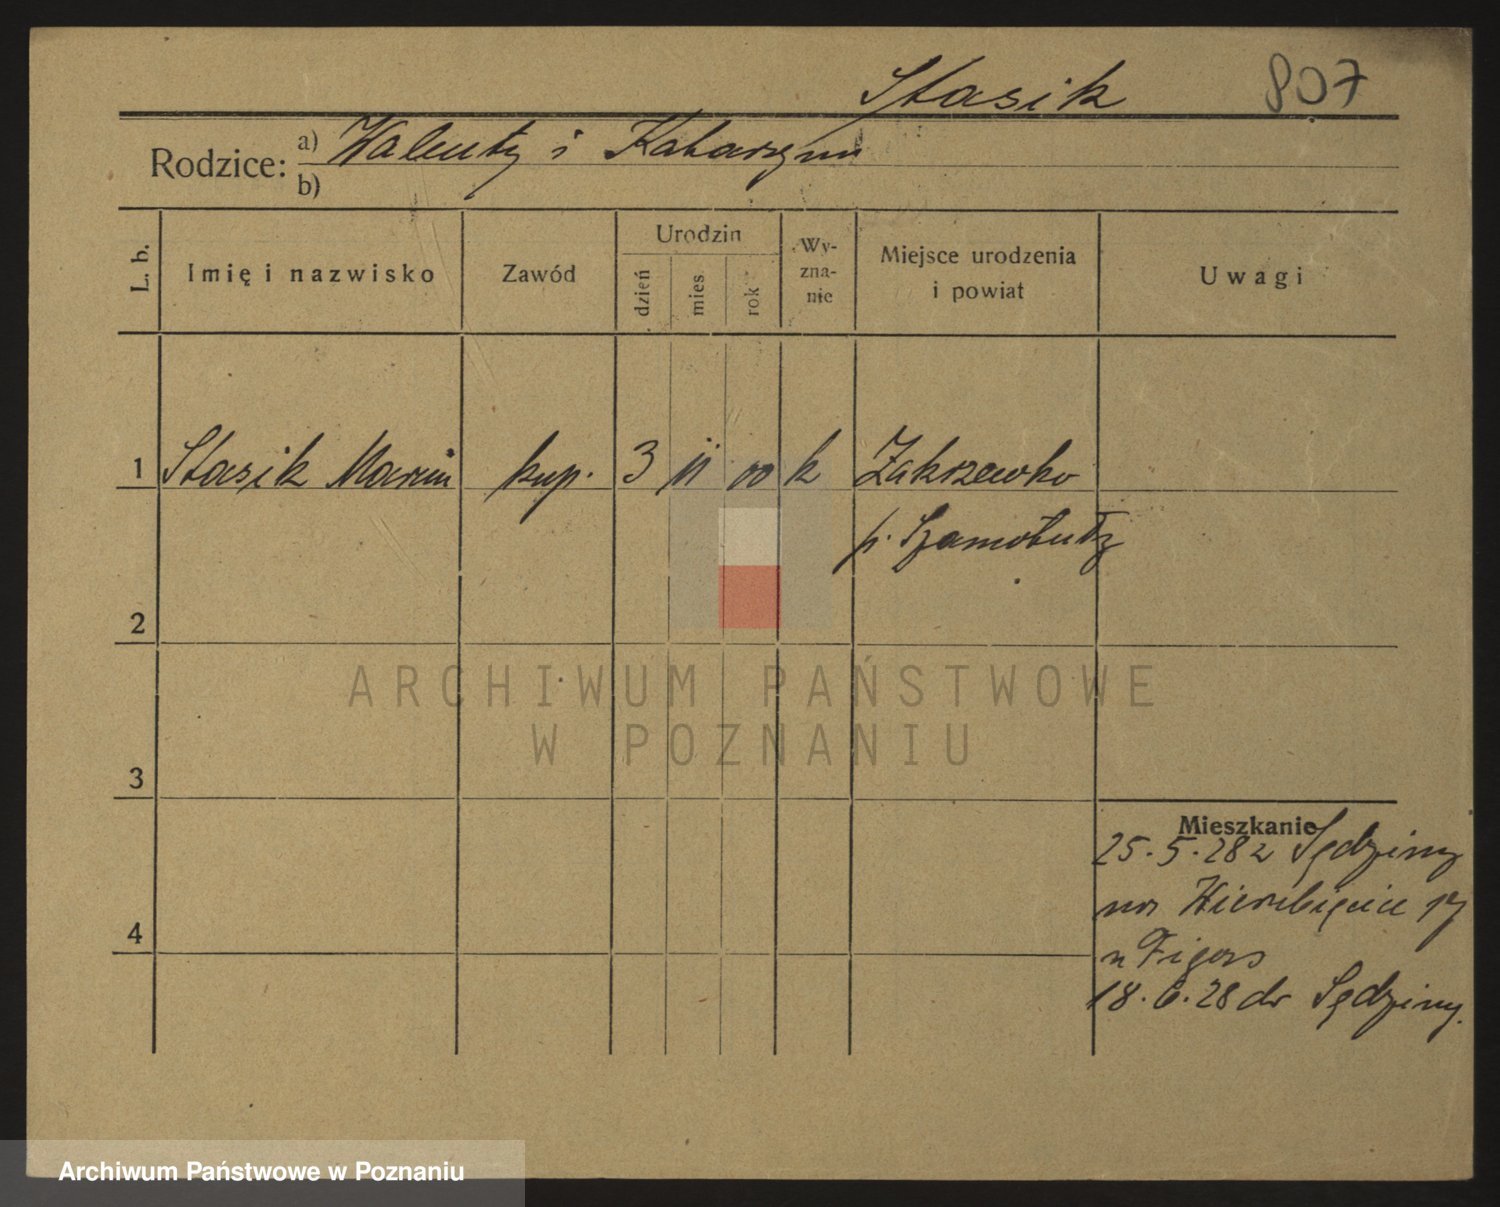 Stasik 807
Rodzice: a) Walenty i Katarzyna
b)
L. b. Imię i nazwisko Zawód Urodzin dzień mies rok Wyznanie Miejsce urodzenia i powiat Uwagi
1 Stasik Marcin kup. 3 11 00 k Zakrzewko
p. Szamotuły
2
ARCHIWUM PAŃSTWOWE
W POZNANIU
3
Mieszkanie
25.5.28 z Sędziny
na Wierzbięcice 17
u Figas
4
18.6.28 do Sędziny.
Archiwum Państwowe w Poznaniu